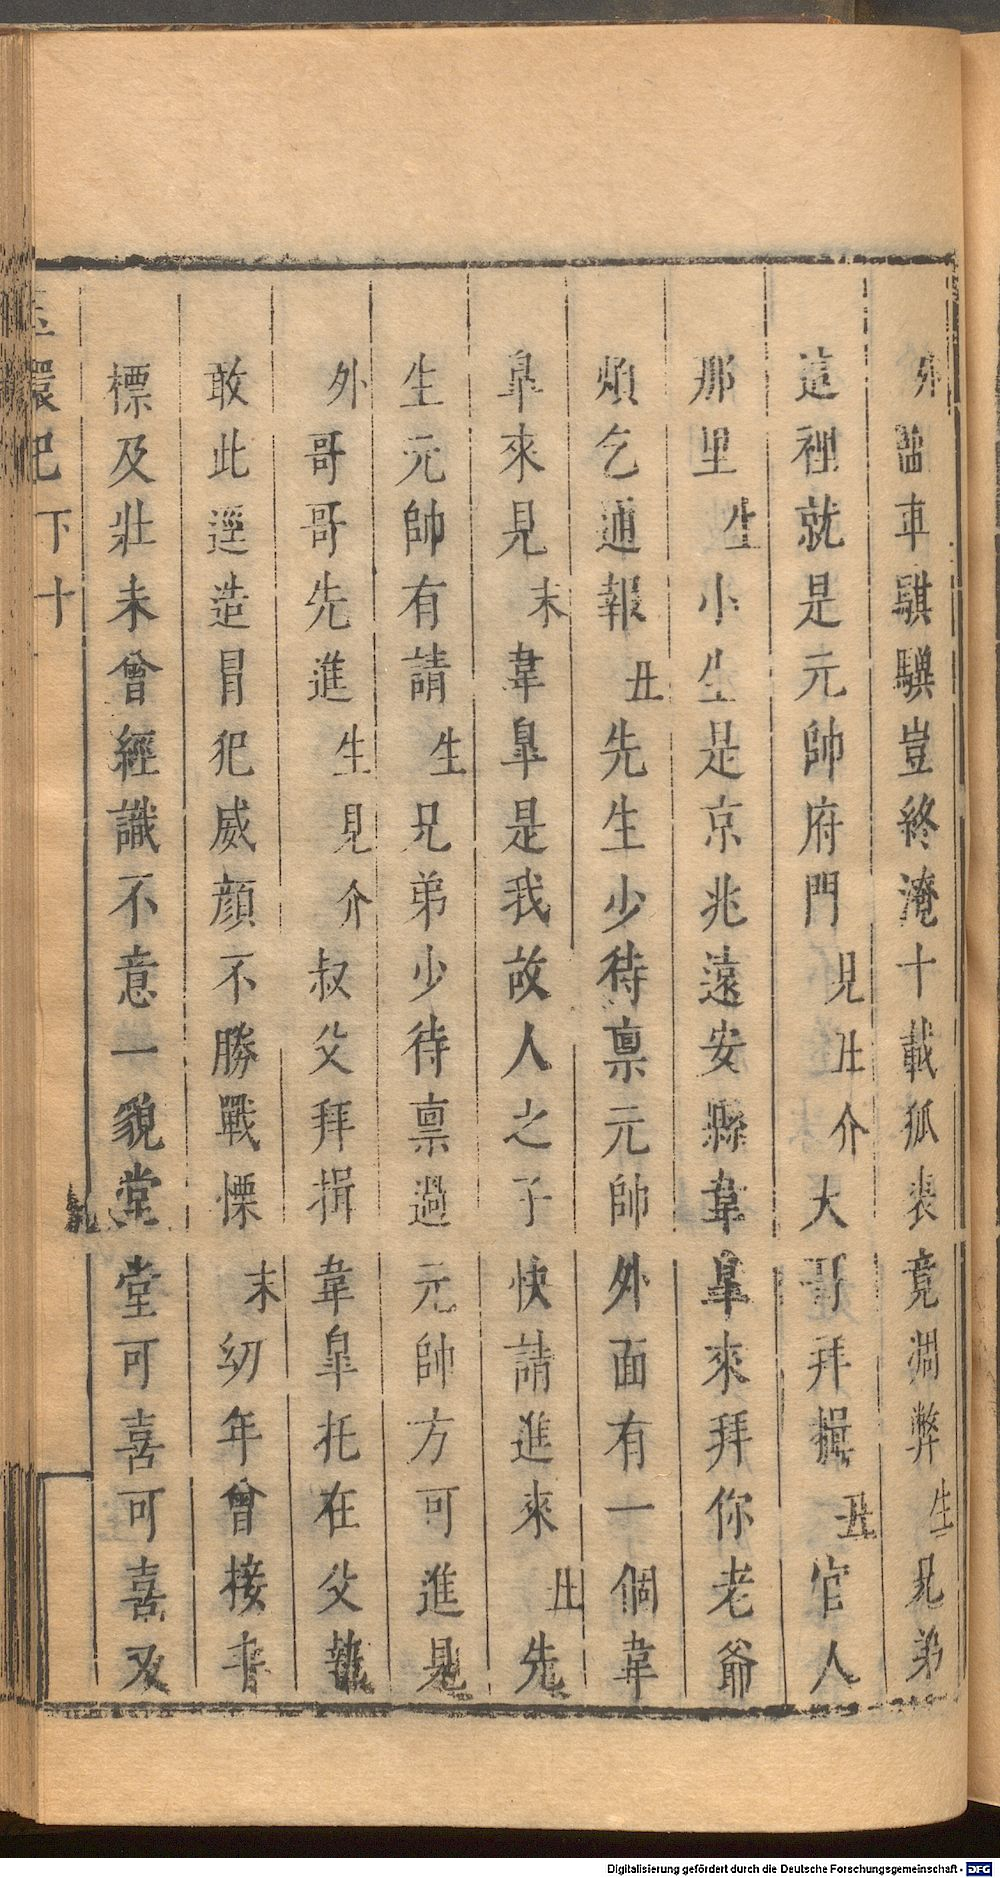 外 當車騏驥豈終淹十載狐裘竟凋弊 生 兄弟
這裡就是元帥府門 見丑介 大哥拜揖 丑 官人
那里 生 小生是京兆遠安縣韋皐來拜你老爺
煩乞通報 丑 先生少待稟元帥外面有一個韋
皐來見 末 韋皐是我故人之子快請進來 丑 先
生元帥有請 生 兄弟少待稟過元帥方可進見
外 哥哥先進 生 見介 叔父拜揖韋皐托在父執
敢此逕造冒犯威顏不勝戰慄 末 幼年曾接丰
標及壯未曾經識不意一貌堂堂可喜可喜又
玉環記 下 十
Digitalisierung gefördert durch die Deutsche Forschungsgemeinschaft - DFG